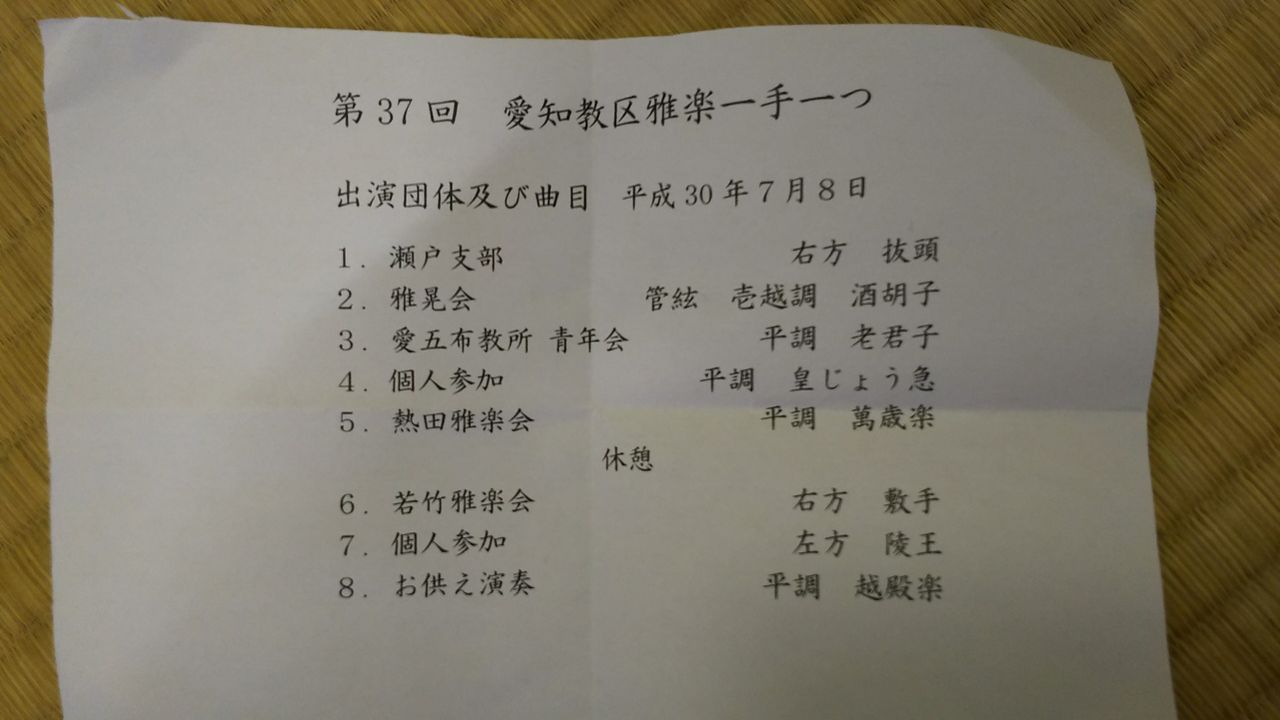 第37回 愛知教区雅楽一手一つ
出演団体及び曲目 平成30年7月8日
1. 瀬戸支部 右方 抜頭
2. 雅晃会 管絃 壱越調 酒胡子
3. 愛五布教所 青年会 平調 老君子
4. 個人参加 平調 皇じょう急
5. 熱田雅楽会 平調 萬歳楽
休憩
6. 若竹雅楽会 右方 敷手
7. 個人参加 左方 陵王
8. お供え演奏 平調 越殿楽